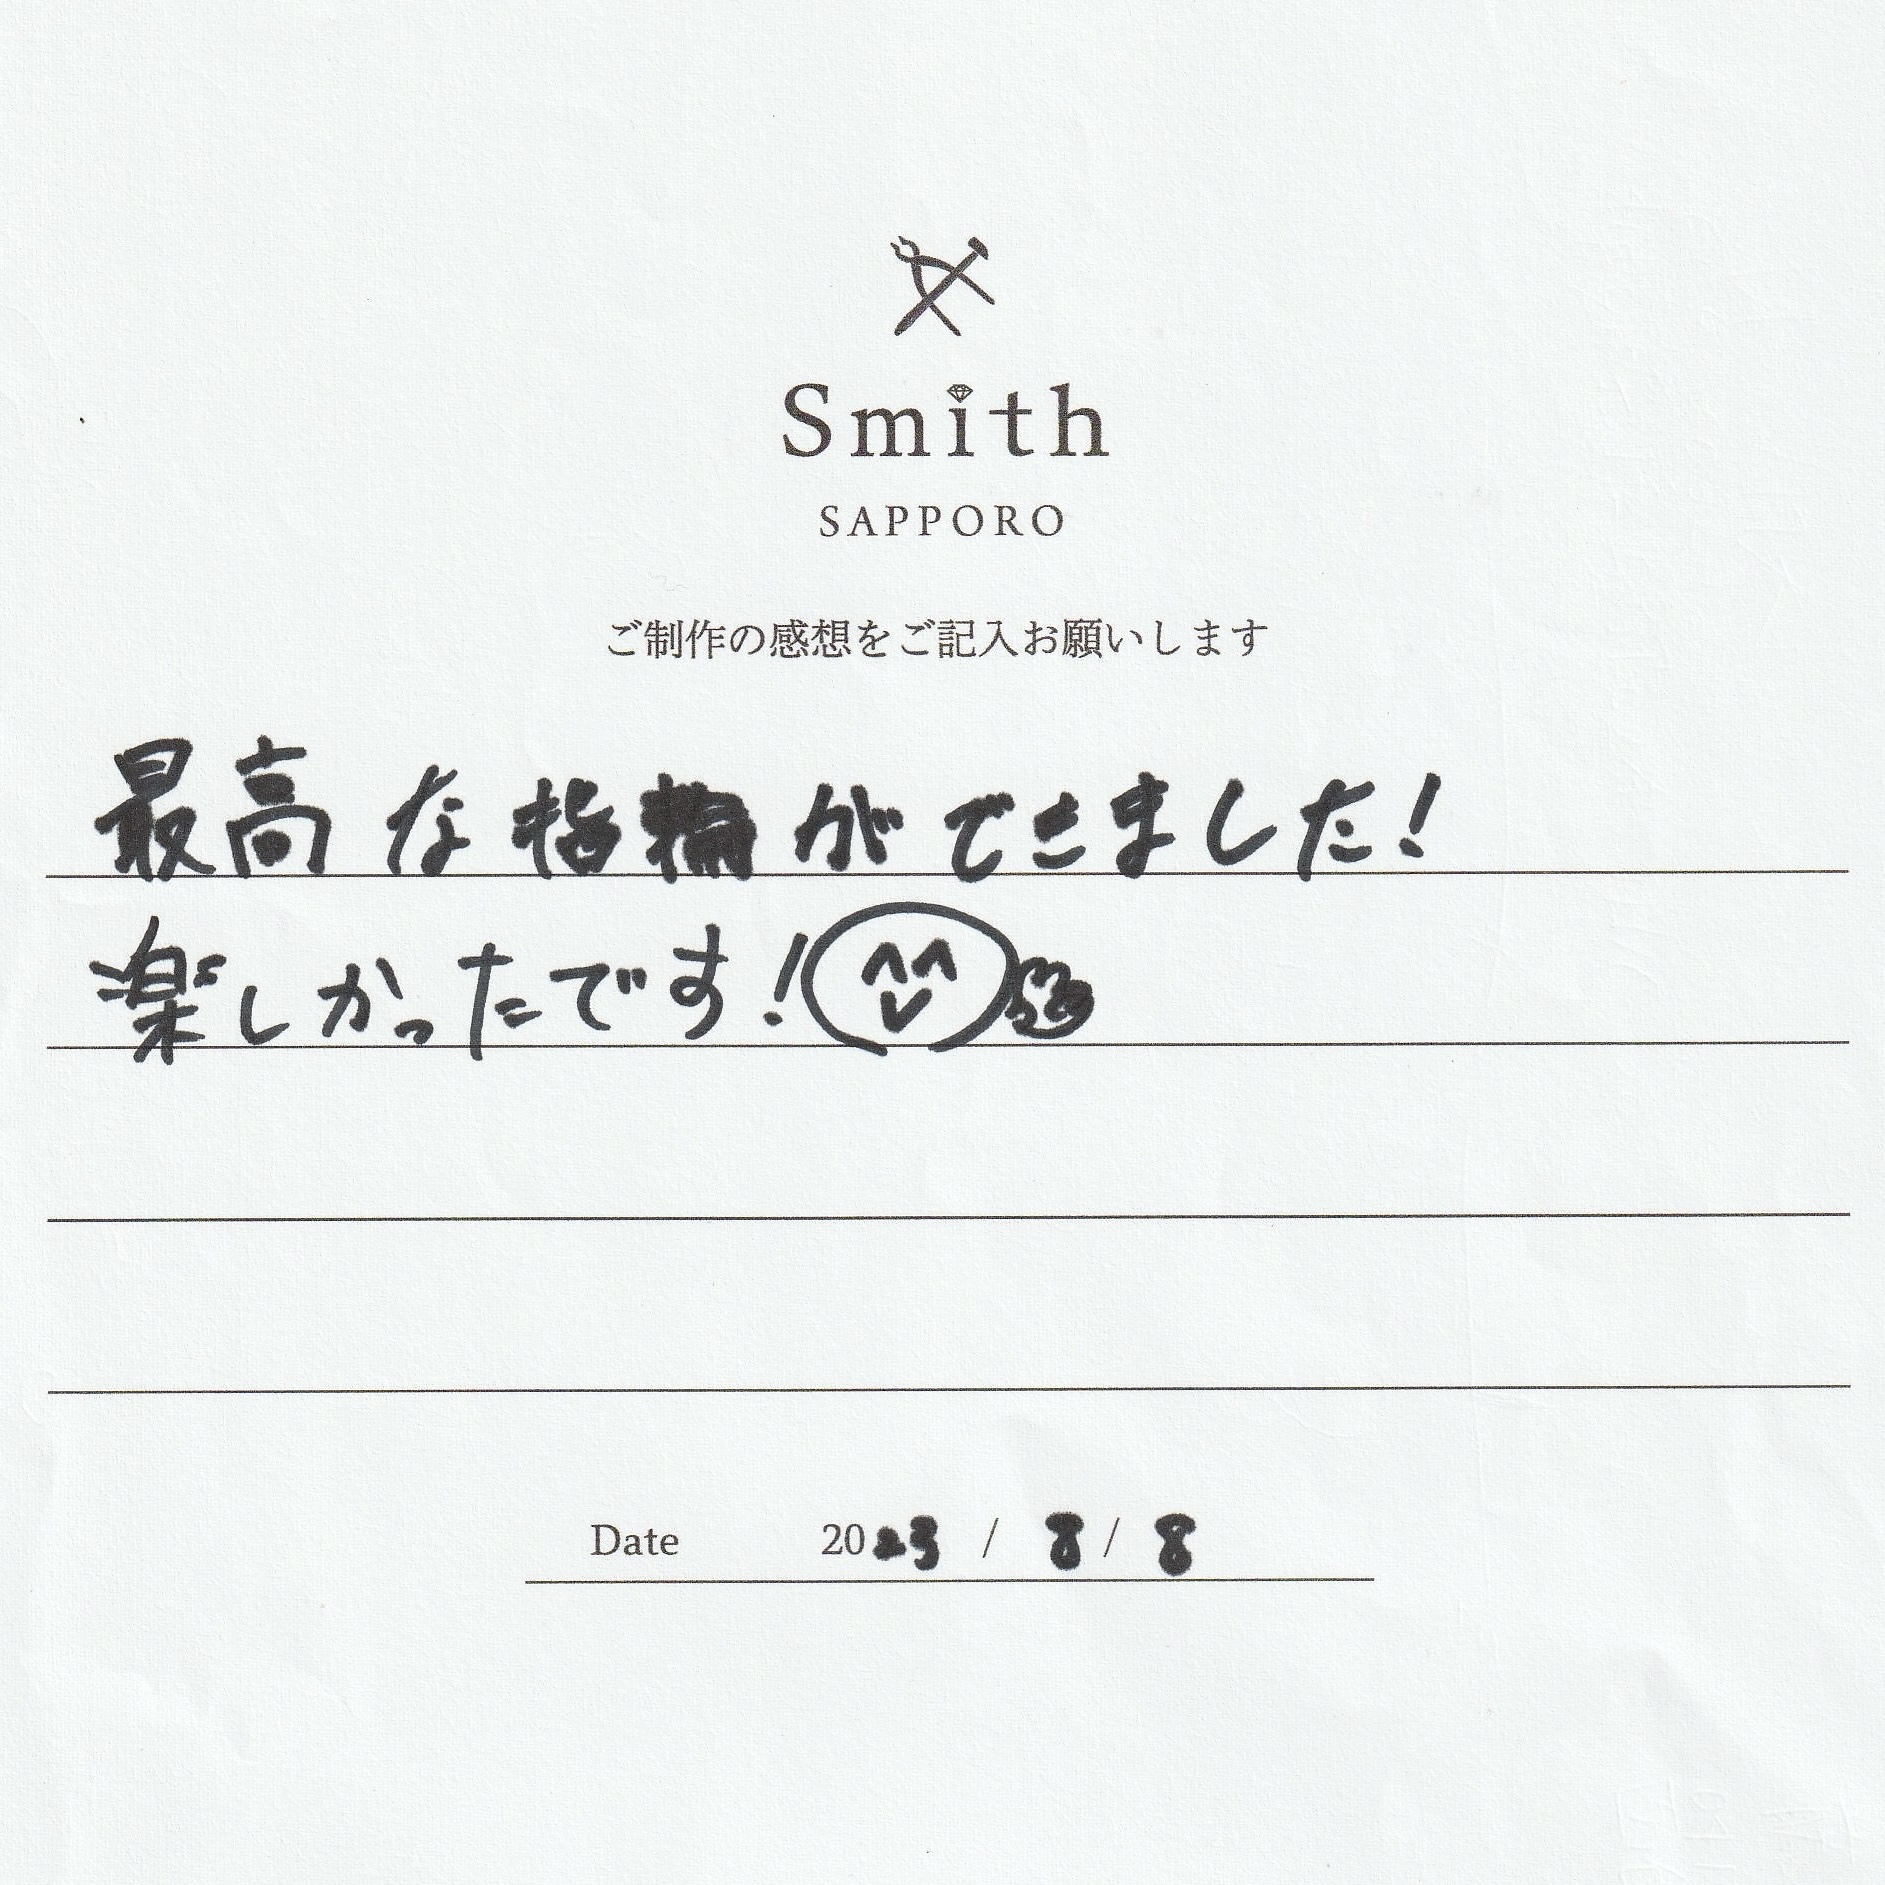 Smith
SAPPORO
ご制作の感想をご記入お願いします
最高な指輪ができました!
楽しかったです!
Date 2023 / 8 / 8